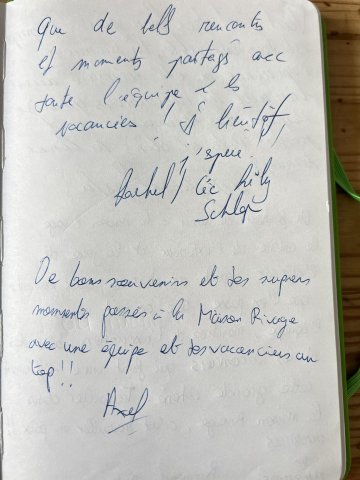 Que de bells rencontres
et moments partagés avec
toute l'équipe & les
vacanciers ! A bientôt,
j'espère.
Rachel
De bons souvenirs et des supers
moments passés à la Maison Rivage
avec une équipe et des vacanciers au
top !!
Axel